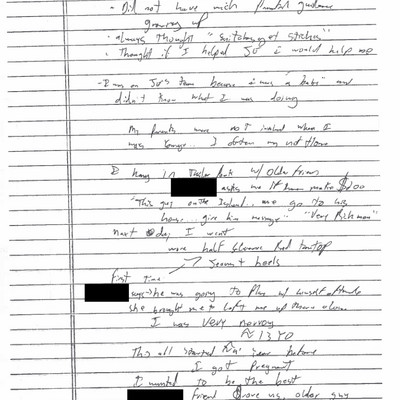 - Did not have much parental guidance
growing up
- always thought "snitches get stitches"
- Thought if I helped I would help me
- I was on team because i was a babe" and
didn't know what I was doing
My parents were not involved when I
was younger... I
hang in w/ older friends
asks me if wanna make $200
"This guy on the Island... we go to his
house... give him massage" "Very Rich man"
next day I went
wore half sleeve Red tanktop
+ heels
First time
says → he was going to Play w/ himself
she brought me to
I was very nervous
≈ 13 YO
This all started ≈ year before
I got pregnant
I wanted to be the best
friend Drove us, older guy